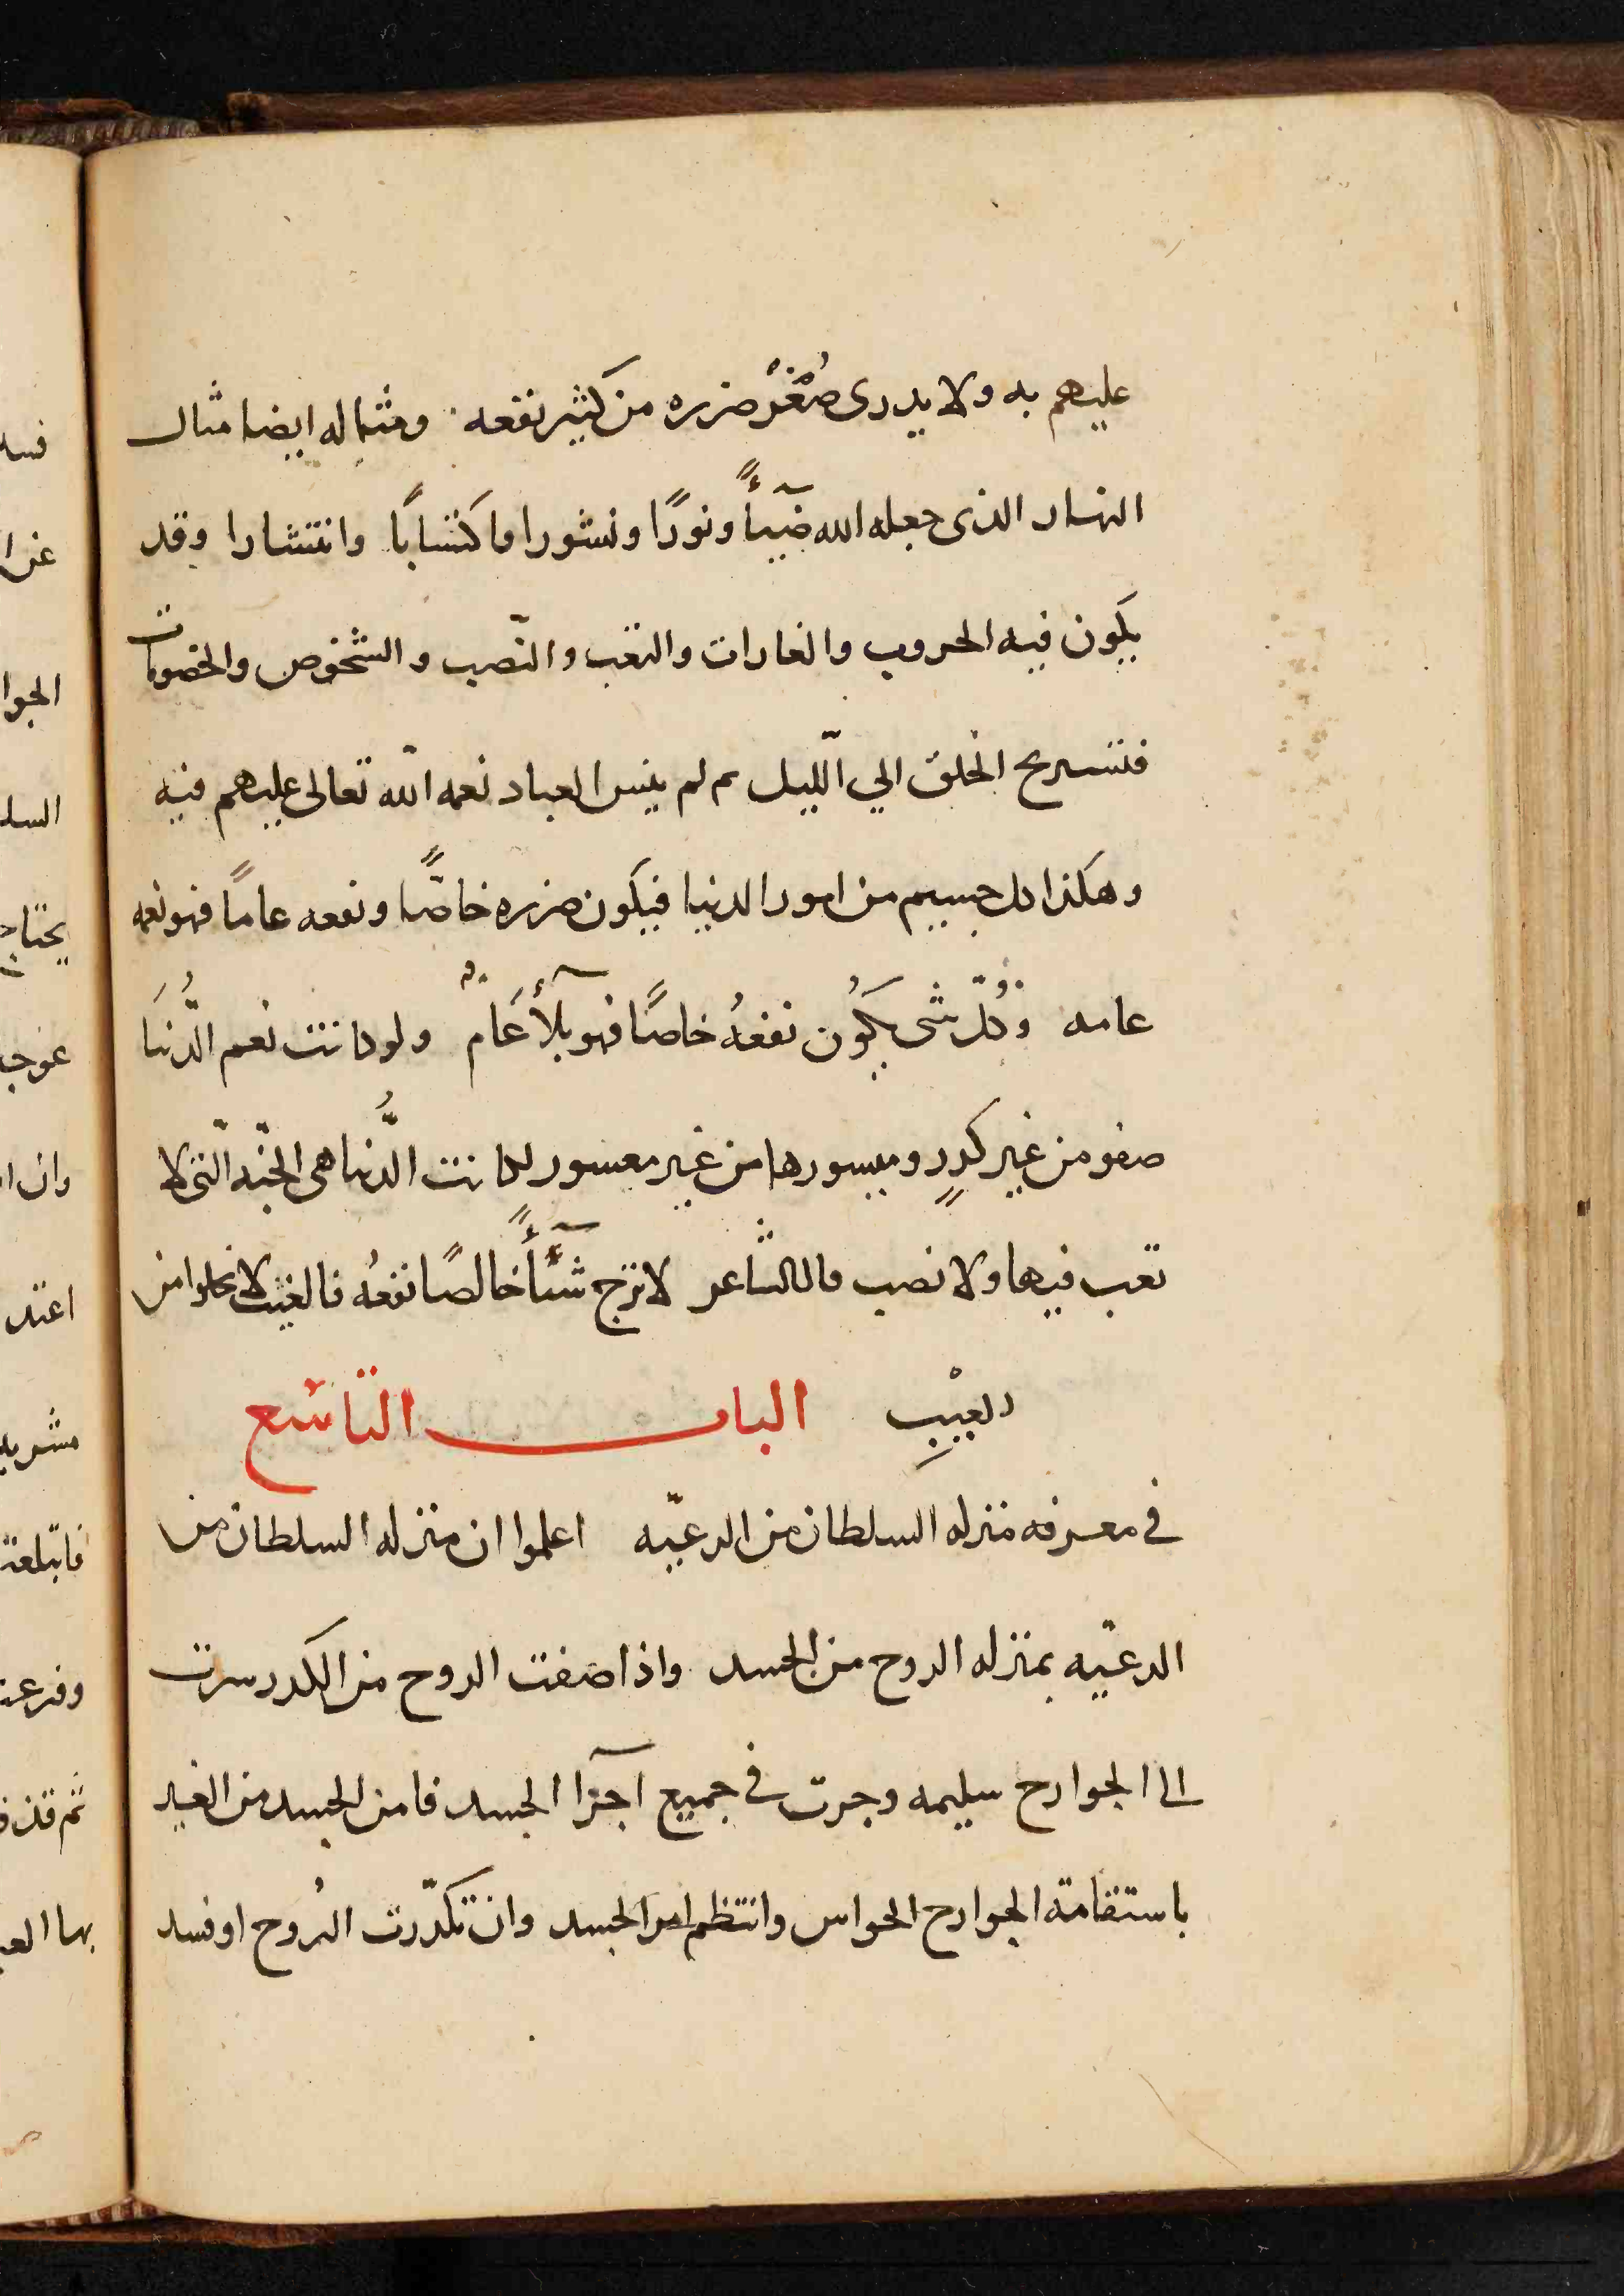 عليهم به ولا يدرى صُغْر ضرره من كثير نفعه . ومثاله ايضا مثال
النهار الذى جعله الله ضيآءً ونورًا ونشورا واكتسابًا وانتشارا وقد
يكون فيه الحروب والغارات والتعب والنّصب والشخوص والخصومات
فتستريح الخلق الي اللّيل ثم لم ينس العباد نعمه الله تعالى عليهم فيه
وهكذا كل جسيم من امور الدنيا فيكون ضرره خاصًّا ونفعه عامًا فهو نعمه
عامه وكُلّ شى يكُون نفعهُ خاصًا فهو بلآءٌ عَامٌ ولو كانت نعم الدُّنيَا
صفو من غير كدرٍ وميسورها من غير معسور لكانت الدُّنيا هى الجنّه الّتى لا
تعب فيها ولا نصب قال الشاعر لا ترج شيئًا خالصًا نفعهُ فالغيث لا يخلوا من
العيْبِ الباب التاسع
في معرفه منزله السلطان من الرعيّه اعلموا ان منزله السلطان من
الرعيّه بمنزله الروح من الجسد واذا صفت الروح من الكدر سرت
الى الجوارح سليمه وجرت في جميع اجزآ الجسد فامن الجسد من الغير
باستقامة الجوارح الحواس وانتظم امر الجسد وان تكدّرت الرُوح او فسد